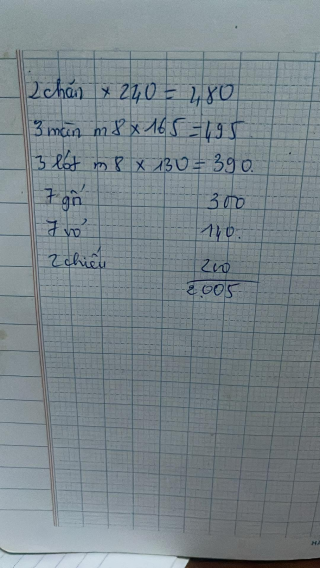 2 chăn × 240 = 480
3 màn m8 × 165 = 495
3 lót m8 × 130 = 390.
7 gối 300
7 vỏ 140.
2 chiếu 200
2.005